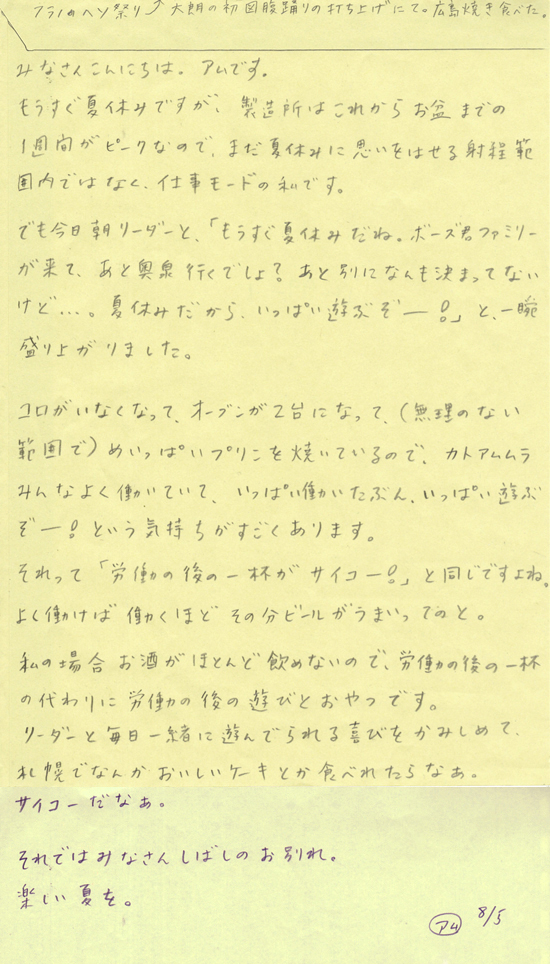 フラノのヘソ祭り⤴太朗の初図腹踊りの打ち上げにて。広島焼き食べた。
みなさんこんにちは。アムです。
もうすぐ夏休みですが、製造所はこれからお盆までの
1週間がピークなので、まだ夏休みに思いをはせる射程範
囲内ではなく、仕事モードの私です。
でも今日朝リーダーと、「もうすぐ夏休みだね。ボーズ君ファミリー
が来て、あと奥泉行くでしょ?あと別になんも決まってない
けど…。夏休みだから、いっぱい遊ぶぞー!」と、一瞬
盛り上がりました。
コロがいなくなって、オーブンが2台になって、(無理のない
範囲で)めいっぱいプリンを焼いているので、カトアムムラ
みんなよく働いていて、いっぱい働いたぶん、いっぱい遊ぶ
ぞー!という気持ちがすごくあります。
それって「労働の後の一杯がサイコー!」と同じですよね。
よく働けば働くほどその分ビールがうまいってのと。
私の場合お酒がほとんど飲めないので、労働の後の一杯
の代わりに労働の後の遊びとおやつです。
リーダーと毎日一緒に遊んでられる喜びをかみしめて、
札幌でなんかおいしいケーキとか食べれたらなぁ。
サイコーだなぁ。
それではみなさんしばしのお別れ。
楽しい夏を。
アム 8/5